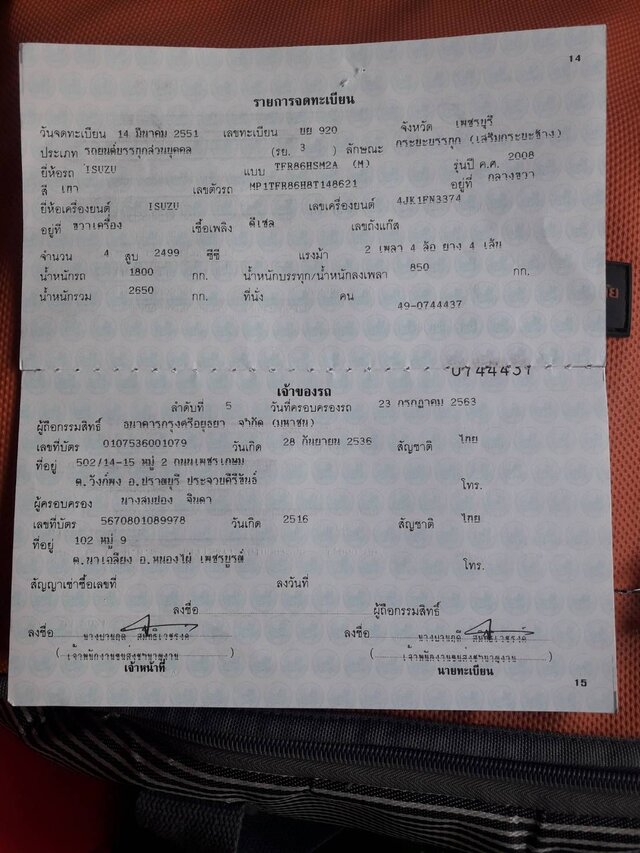 14
รายการจดทะเบียน
วันจดทะเบียน 14 มีนาคม 2551 เลขทะเบียน บย 920 จังหวัด เพชรบุรี
ประเภท รถยนต์บรรทุกส่วนบุคคล (รย. 3 ) ลักษณะ กระบะบรรทุก (เสริมกระบะข้าง)
ยี่ห้อรถ ISUZU แบบ TFR86HSM2A (M) รุ่นปี ค.ศ. 2008
สี เทา เลขตัวรถ MP1TFR86H8T148621 อยู่ที่ กลางขวา
ยี่ห้อเครื่องยนต์ ISUZU เลขเครื่องยนต์ 4JK1FN3374
อยู่ที่ ขวาเครื่อง เชื้อเพลิง ดีเซล เลขถังแก๊ส
จำนวน 4 สูบ 2499 ซีซี แรงม้า 2 เพลา 4 ล้อ ยาง 4 เส้น
น้ำหนักรถ 1800 กก. น้ำหนักบรรทุก/น้ำหนักลงเพลา 850 กก.
น้ำหนักรวม 2650 กก. ที่นั่ง คน
49-0744437
0744437
เจ้าของรถ
ลำดับที่ 5 วันที่ครอบครองรถ 23 กรกฎาคม 2563
ผู้ถือกรรมสิทธิ์ ธนาคารกรุงศรีอยุธยา จำกัด (มหาชน)
เลขที่บัตร 0107536001079 วันเกิด 28 กันยายน 2536 สัญชาติ ไทย
ที่อยู่ 502/14-15 หมู่ 2 ถนนเพชรเกษม
ต.วังก์พง อ.ปราณบุรี ประจวบคีรีขันธ์ โทร.
ผู้ครอบครอง นางสมปอง จินดา
เลขที่บัตร 5670801089978 วันเกิด 2516 สัญชาติ ไทย
ที่อยู่ 102 หมู่ 9
ต.นาเฉลียง อ.หนองไผ่ เพชรบูรณ์ โทร.
สัญญาเช่าซื้อเลขที่ ลงวันที่
ลงชื่อ ผู้ถือกรรมสิทธิ์
ลงชื่อ ลงชื่อ
(เจ้าพนักงานขนส่งชำนาญงาน) (เจ้าพนักงานขนส่งชำนาญงาน)
เจ้าหน้าที่ นายทะเบียน
15